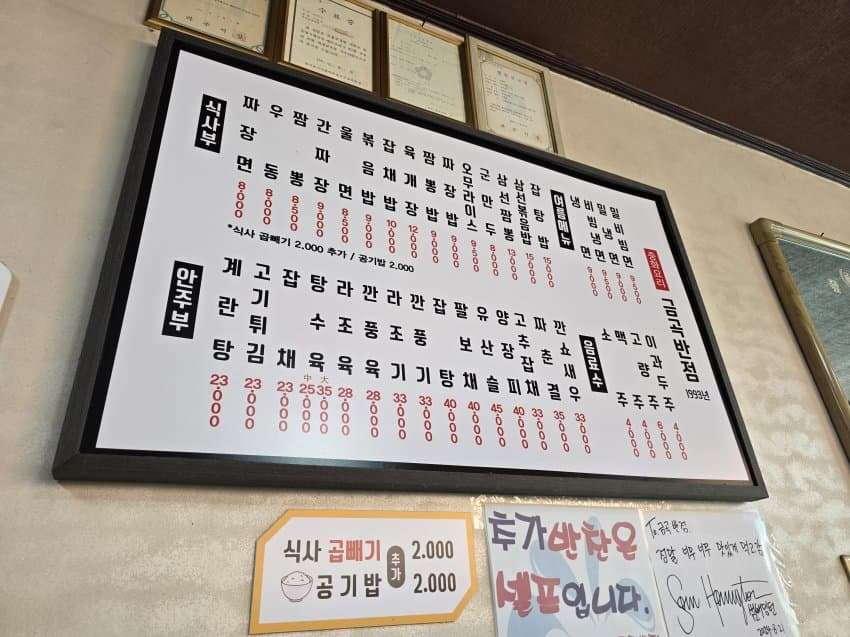 식사부
짜장면 8,000
우동 8,000
짬뽕 8,500
간짜장 9,000
울면 8,500
볶음밥 9,000
잡채밥 10,000
육개장 12,000
짬뽕밥 9,000
짜장밥 9,000
오무라이스 9,500
군만두 8,000
삼선짬뽕 13,000
삼선볶음밥 15,000
잡탕밥 15,000
*식사 곱빼기 2,000 추가 / 공기밥 2,000
여름메뉴
냉면
비빔냉면
밀냉면
밀비빔면
중화요리
금곡반점
1993년
안주부
계란탕 23,000
고기튀김 23,000
잡채 23,000
탕수육 中 25,000 大 35,000
라조육 28,000
깐풍육 28,000
라조기 33,000
깐풍기 33,000
잡탕 40,000
팔보채 40,000
유산슬 45,000
양장피 40,000
고추잡채 33,000
짜춘결 35,000
깐쇼새우 33,000
음료수
소주 4,000
맥주 4,000
고량주 6,000
이과두주 4,000
식사 곱빼기 추가 2.000
공기밥 2.000
추가반찬은
셀프입니다.
To. 금곡반점
정말 너무 너무 맛있게 먹고감